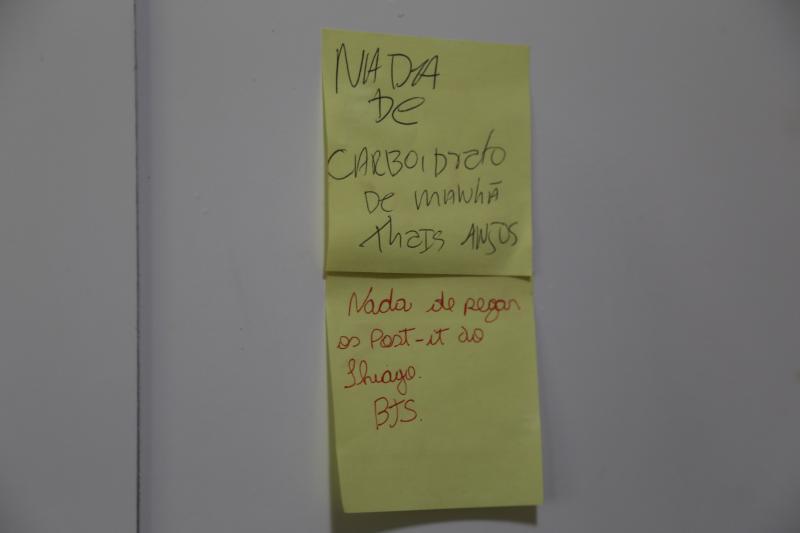 NADA
DE
CARBOIDRATO
DE MANHÃ
thais ANJOS
Nada de pegar
os Post-it do
Thiago.
BJS.